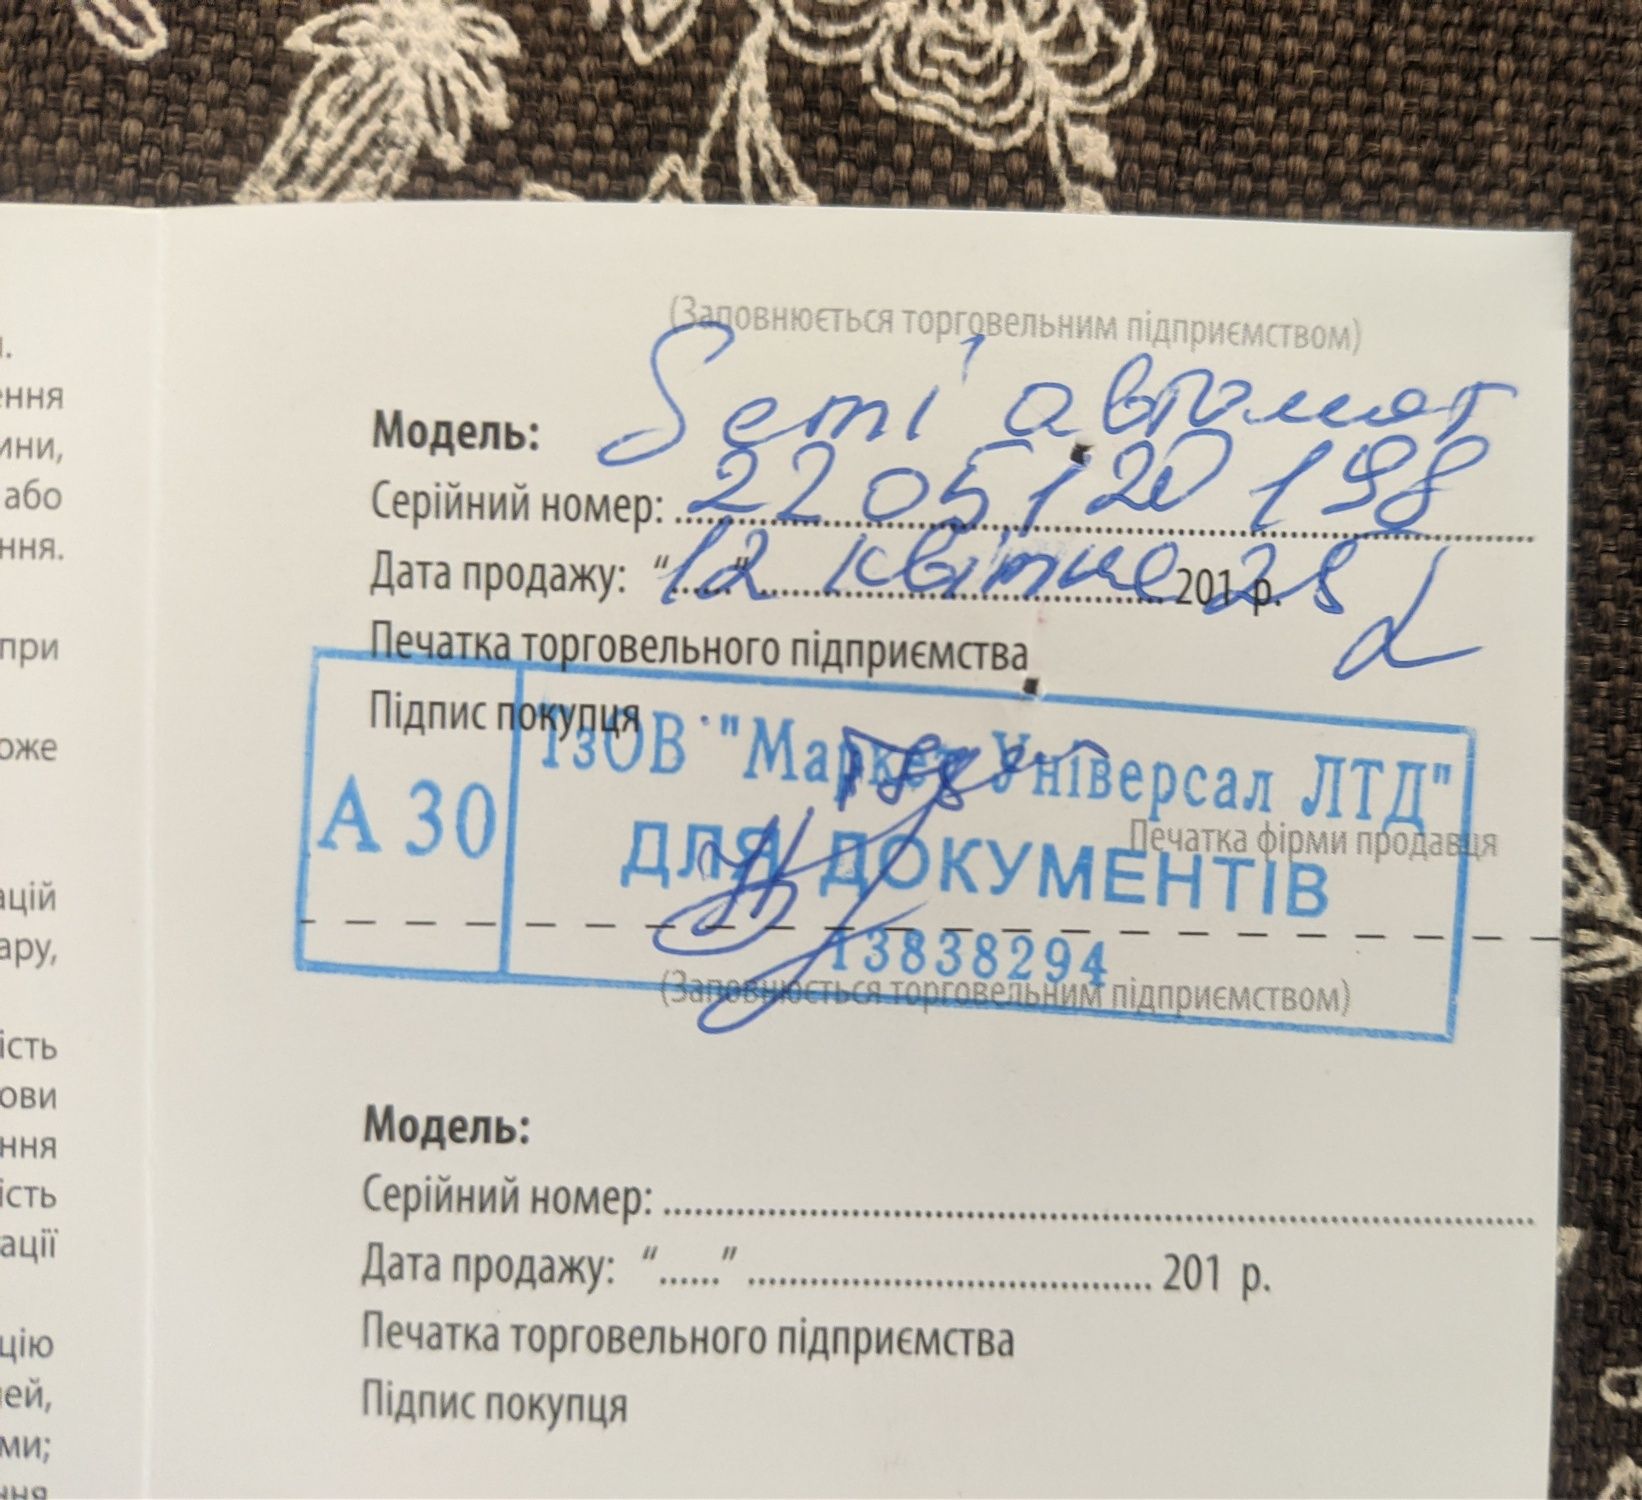 ення
ини,
або
ння.
при
оже
ацій
ару,
ість
ови
ння
ість
ації
цію
ей,
ми;
ння
(Заповнюється торговельним підприємством)
Модель: Semi автомат
Серійний номер: 2205120198
Дата продажу: "12" квітня 201 р.
Печатка торговельного підприємства
Підпис покупця
А 30
ТзОВ "Маркет Універсал ЛТД"
ДЛЯ ДОКУМЕНТІВ
13838294
Печатка фірми продавця
(Заповнюється торговельним підприємством)
Модель:
Серійний номер:
Дата продажу: "......" 201 р.
Печатка торговельного підприємства
Підпис покупця